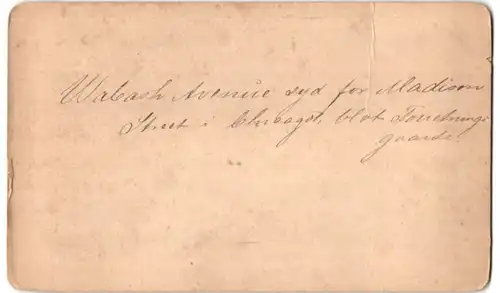 Wabash Avenue syd for Madison
Street i Chicago, blot Forretnings-
gaarde.